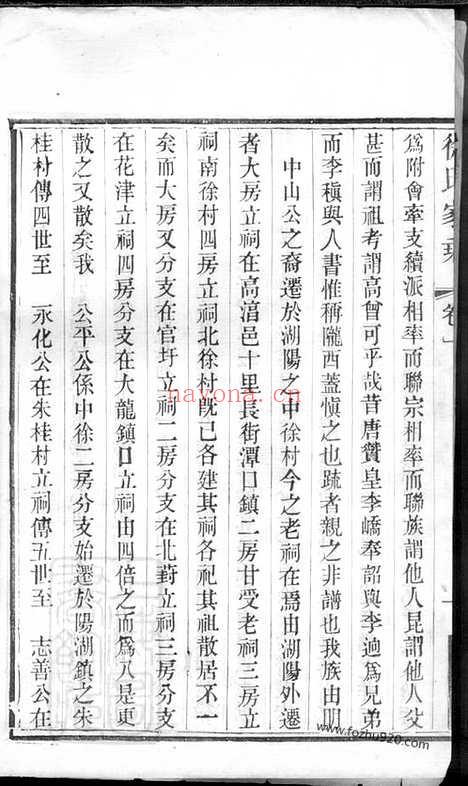 徐氏家乘 卷一
爲附會牽支續派相率而聯宗相率而聯族謂他人昆謂他人父
甚而謂祖考謂高曾可乎哉昔唐贊皇李嶠奉詔與李迪爲兄弟
而李稹與人書惟稱隴西蓋愼之也疏者親之非譜也我族由明
中山公之裔遷於湖陽之中徐村今之老祠在焉由湖陽外遷
者大房立祠在高湻邑十里長街潭口鎮二房甘受老祠三房立
祠南徐村四房立祠北徐村旣已各建其祠各祀其祖散居不一
矣而大房又分支在官圩立祠二房分支在北葑立祠三房分支
在花津立祠四房分支在大龍鎮口立祠由四倍之而爲八是更
散之又散矣我 公平公係中徐二房分支始遷於陽湖鎮之朱
桂村傳四世至 永化公在朱桂村立祠傳五世至 志善公在
nayona.cn
www.fozhu920.com